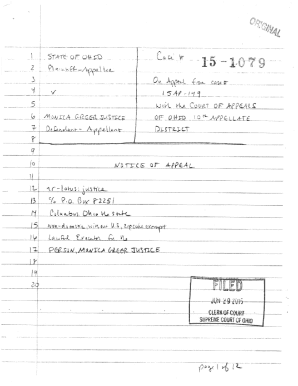 ORIGINAL
1 STATE OF OHIO Case # 15-1079
2 Plaintiff-Appellee
3 On Appeal from case
4 v
5 with the COURT OF APPEALS
6 MONICA GREER JUSTICE OF OHIO 10th APPELLATE
7 Defendant-Appellant DISTRICT
8
9
10 NOTICE OF APPEAL
11
12 justice
13 % P.O. Box
14 Columbus Ohio the state
15 without U.S., zip code exempt
16 Lawful for the
17 PERSON, MONICA GREER JUSTICE
18
19
20
FILED
JUN 29 2015
CLERK OF COURT
SUPREME COURT OF OHIO
page 1 of 12